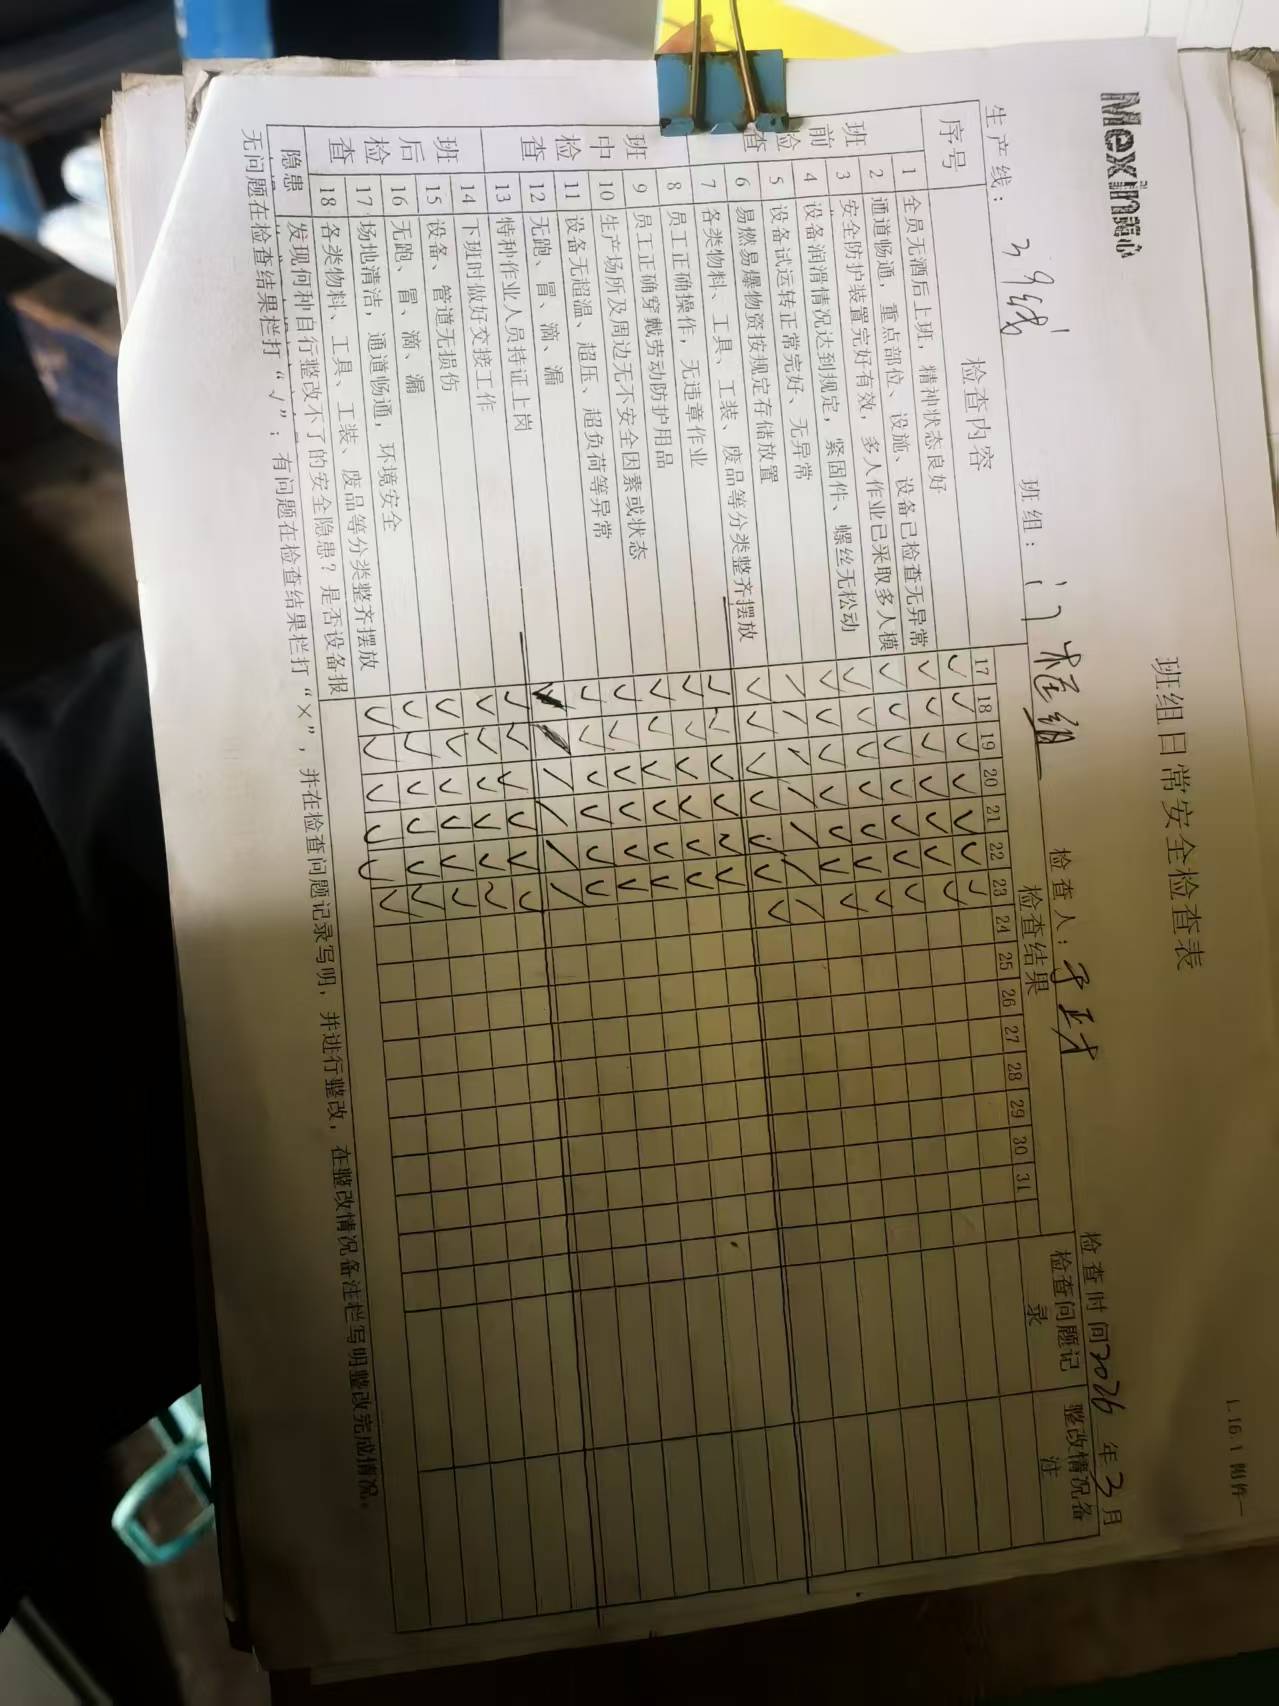 1.16.1 附件一
Mexin美心
班组日常安全检查表
生产线: 3#线 班组: 门框组 检查人: 检查时间2026 年3月
序号 检查内容 检查结果 检查问题记录 整改情况备注
17 18 19 20 21 22 23 24 25 26 27 28 29 30 31
班前检查
1 全员无酒后上班，精神状态良好 √ √ √ √ √ √ √
2 通道畅通，重点部位、设施、设备已检查无异常 √ √ √ √ √ √ √
3 安全防护装置完好有效，多人作业已采取多人模 √ √ √ √ √ √ √
4 设备润滑情况达到规定，紧固件、螺丝无松动 √ √ √ √ √ √ √
5 设备试运转正常完好、无异常 √ √ √ √ √ √ √
6 易燃易爆物资按规定存储放置 / / / / / / /
7 各类物料、工具、工装、废品等分类整齐摆放 √ √ √ √ √ √ √
班中检查
8 员工正确操作，无违章作业 √ √ √ √ √ √
9 员工正确穿戴劳动防护用品 √ √ √ √ √ √
10 生产场所及周边无不安全因素或状态 √ √ √ √ √ √
11 设备无超温、超压、超负荷等异常 √ √ √ √ √ √
12 无跑、冒、滴、漏 √ √ √ √ √ √
13 特种作业人员持证上岗 / / / /
班后检查
14 下班时做好交接工作 √ √ √ √ √ √
15 设备、管道无损伤 √ √ √ √ √ √
16 无跑、冒、滴、漏 √ √ √ √ √ √
17 场地清洁，通道畅通，环境安全 √ √ √ √ √ √
18 各类物料、工具、工装、废品等分类整齐摆放 √ √ √ √ √ √
隐患 发现何种自行整改不了的安全隐患？是否设备报
无问题在检查结果栏打“√”；有问题在检查结果栏打“×”，并在检查问题记录写明，并进行整改，在整改情况备注栏写明整改完成情况。